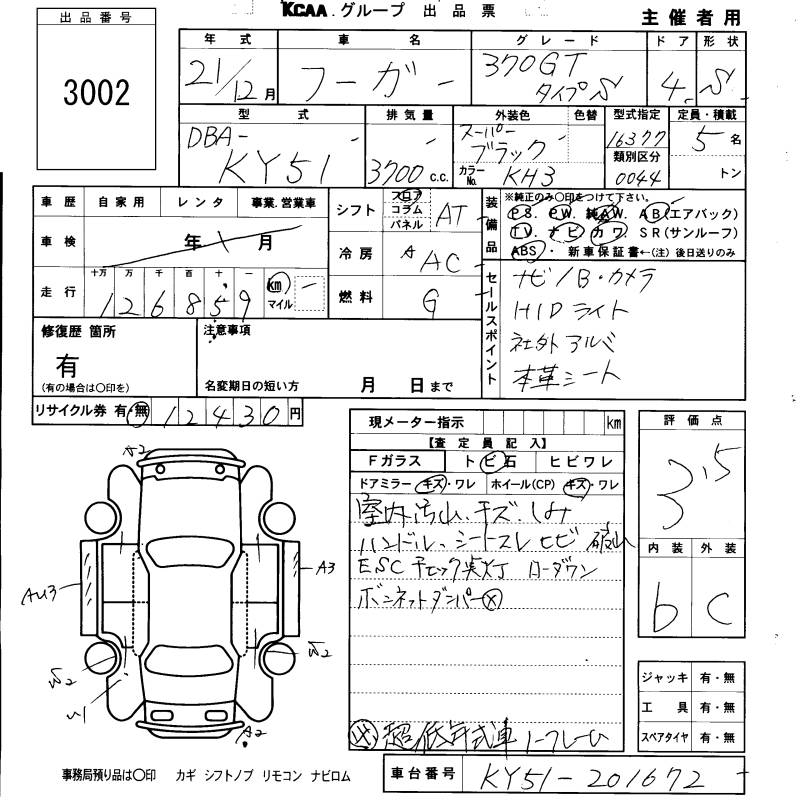 KCAA.グループ 出品票
主催者用
出品番号
3002
年式 車名 グレード ドア 形状
21/12月 フーガ - 370GT タイプS 4 S
型式 排気量 外装色 色替 型式指定 定員・積載
DBA-KY51 3700c.c. スーパーブラック 16377 5名
カラーNo. KH3 類別区分 0044 トン
車歴 自家用 レンタ 事業.営業車
車検 年 月
走行 十万 万 千 百 十 一 km マイル
126859
シフト フロア コラム パネル AT
冷房 A AC
燃料 G
装備品 ※純正のみ○印をつけて下さい。
PS. PW. 純AW. AB(エアバック)
TV. ナビ カワ. SR(サンルーフ)
ABS. 新車保証書←(注)後日送りのみ
セールスポイント
ナビ/B・カメラ
HIDライト
社外アルミ
本革シート
修復歴 箇所
有
(有の場合は○印を)
注意事項
名変期日の短い方 月 日まで
リサイクル券 有・無 12430円
現メーター指示 km
【査定員記入】
Fガラス トビ石 ヒビワレ
ドアミラー キズ・ワレ ホイール(CP) キズ・ワレ
室内汚れ、キズ、しみ
ハンドル、シートスレ ヒビ 破れ
ESCチェック点灯 ローダウン
ボンネットダンパー×
超低年式車
評価点
3.5
内装 外装
b C
A2
AU3
A3
W2
W2
U1
A2
ジャッキ 有・無
工具 有・無
スペアタイヤ 有・無
事務局預り品は○印 カギ シフトノブ リモコン ナビロム
車台番号 KY51-201672